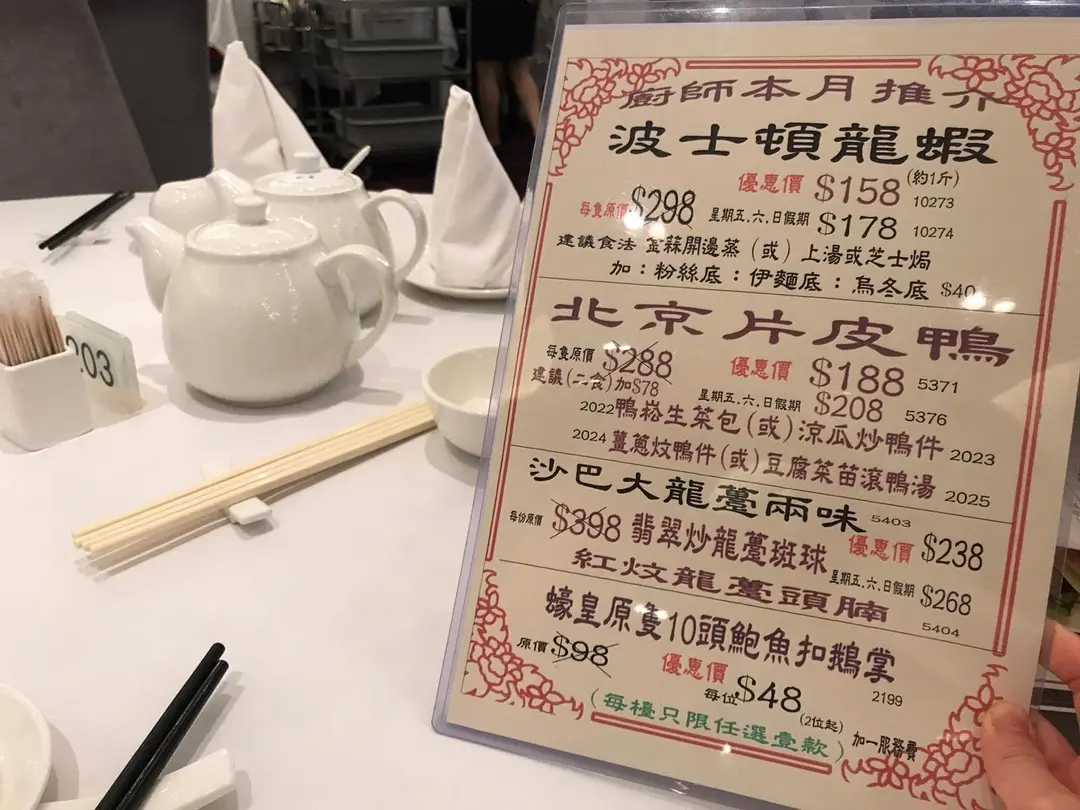 廚師本月推介
波士頓龍蝦
每隻原價 $298 優惠價 $158 (約1斤) 10273
星期五.六.日假期 $178 10274
建議食法 金蒜開邊蒸(或)上湯或芝士焗
加:粉絲底:伊麵底:烏冬底 $40
北京片皮鴨
每隻原價 $288 優惠價 $188 5371
建議(二食)加$78 星期五.六.日假期 $208 5376
2022 鴨崧生菜包(或)涼瓜炒鴨件 2023
2024 薑蔥炆鴨件(或)豆腐菜苗滾鴨湯 2025
沙巴大龍躉兩味 5403
每份原價 $398 翡翠炒龍躉斑球 優惠價 $238
紅炆龍躉頭腩 星期五.六.日假期 $268
5404
蠔皇原隻10頭鮑魚扣鵝掌
原價 $98 優惠價 每位 $48 (2位起) 2199
(每檯只限任選壹款) 加一服務費
203